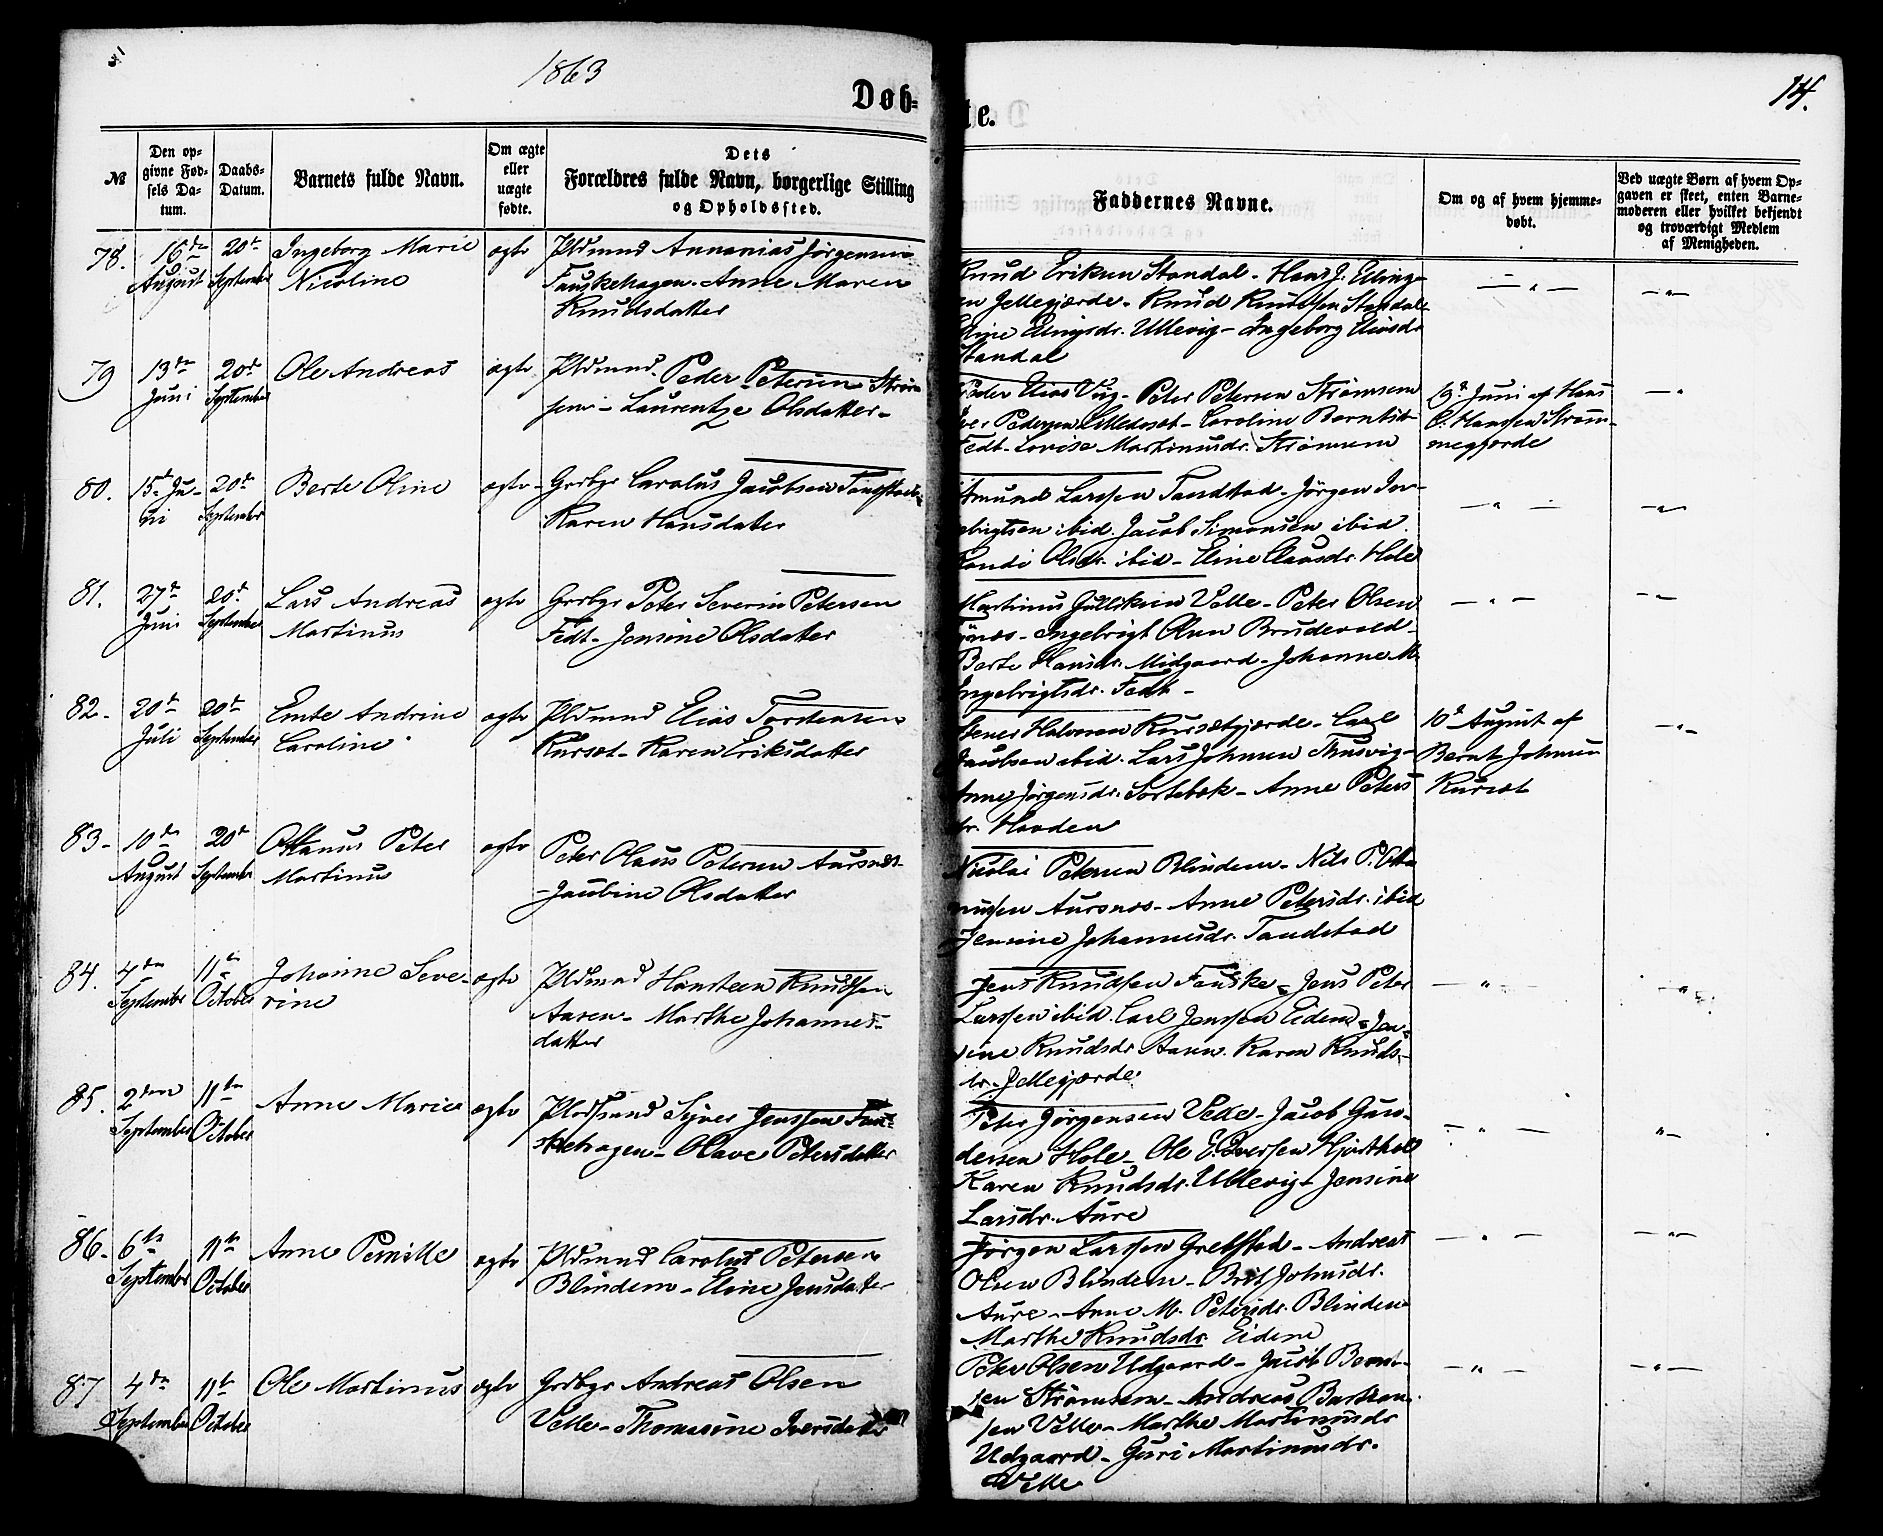 1863
Døb=
te.
14.
№
Den op=
givne Fød=
sels Da=
tum.
Daabs=
Datum.
Barnets fulde Navn.
Om ægte
eller
uægte
fødte.
Dets
Forældres fulde Navn, borgerlige Stilling
og Opholdssted.
Faddernes Navne.
Om og af hvem hjemme=
døbt.
Ved uægte Børn af hvem Op=
gaven er skeet, enten Barne=
moderen eller hvilket bekjendt
og troværdigt Medlem
af Menigheden.
78.
16de
August
20de
September
Ingeborg Marie
Nicoline
ægte
Pldmand Annanias Jørgensen
Fauskehagen. Anne Maren
Knudsdatter
Knud Eriksen Standal - Hans J. Elling-
sen Jellegjærde - Knud Knudssen Standal
Eline Elingsdr. Ullevig - Ingeborg Eliasdr
Standal
- " -
- " -
79
13de
Juni
20de
September
Ole Andreas
ægte
Pldmand. Peder Petersen Strøm
sem - Laurentze Olsdatter -
Peder Elias Vig - Peter Petersen Strømsem
Iver Pedersen Lilleboset - Caroline Berntsdr
Fedt - Lovise Martinusdr. Strømsem
19de Juni af Hans
C. Hansen Strøm-
megjerde
- "
80.
15de Ju-
ni
20de
September
Berte Oline
ægte -
Grdbgr Carolus Jacobsen Tandstad
Karen Hansdatter
Amund Larssen Tandstad - Jørgen In-
gebrigtsen ibid. Jacob Simonsen ibid.
Randi Olsdr. ibid - Eline Clausdr. Hole
- " -
- " -
81.
27de
Juni
20de
September
Lars Andreas
Martinus
ægte
Grdbgr Peter Severin Petersen
Fedt - Jensine Olsdatter
Martinus Gulliksen Velle - Peter Olsen
- Ingebrigt Olsen Brudevold -
Berte Hansdr. Midgaard - Johanne M.
Ingebrigtsdr. Fedt -
- " -
- " -
82 -
20de
Juli
20de
September
Emte Andrine
Caroline
ægte
Pldmand Elias Tordensen
Kurset - Karen Eriksdatter
Halvorsen Kursetgjærde - Carl
Jacobsen ibid. Lars Johnsen Tusvig -
Anne Jørgensdr. Sortebek - Anne Peters
dr. Hovden
10de August af
Bernt Johnsen
Kurset
- " -
83 -
10de
August
20de
September
Ottanus Peter
Martinus
ægte
Peter Olaus Petersen Aursnes
- Jacobine Olsdatter
Nicolai Petersen Blindem - Nils P. Otta
nussen Aursnes - Anne Petersdr. ibid
Jensine Johannesdr. Tandstad
84.
4de
September
11te
October
Johanne Seve-
rine
ægte
Pldmand Hansteen Knudssen
Aasen - Marthe Johannes-
datter
Jens Knudssen Fauske - Jens Peter
Larssen ibid. Carl Jenssen Eidem - Jen-
sine Knudsdr Aasen. Karen Knuds-
dr. Jellegjærde.
- " -
- " -
85.
2den
September
11te
October
Anne Marie
ægte
Pladsmand Syver Jenssen Fau-
skehagen - Olave Petersdatter
Peter Jørgensen Velle - Jacob Gun-
dersen Hole - Ole E. Iversen Hjorthol
Karen Knudsdr. Ullevig - Jensine
Larsdr. Aure
- " -
" -
86 -
6te
September
11te
October
Anne Pernille
ægte
Pldmand Carolus Petersen
Blindem - Eline Jensdatter
Jørgen Larssen Grebstad - Andreas
Olsen Blindem - Brit Johnsdr.
Aure - Anne M. Petersdr. Blindem
Marthe Knudsdr Eidem
- " -
- " -
87
4de
September
11te
October
Ole Martinus
ægte
Grdbgr Andreas Olsen
Velle - Thomasine Iversdatter
Peter Olsen Udgaard - Jacob Bernt-
sen Strømsem - Andreas Bastian-
sen Velle - Marthe Martinusdr
Udgaard - Guri Martinusdr.
Velle
- " -
- " -